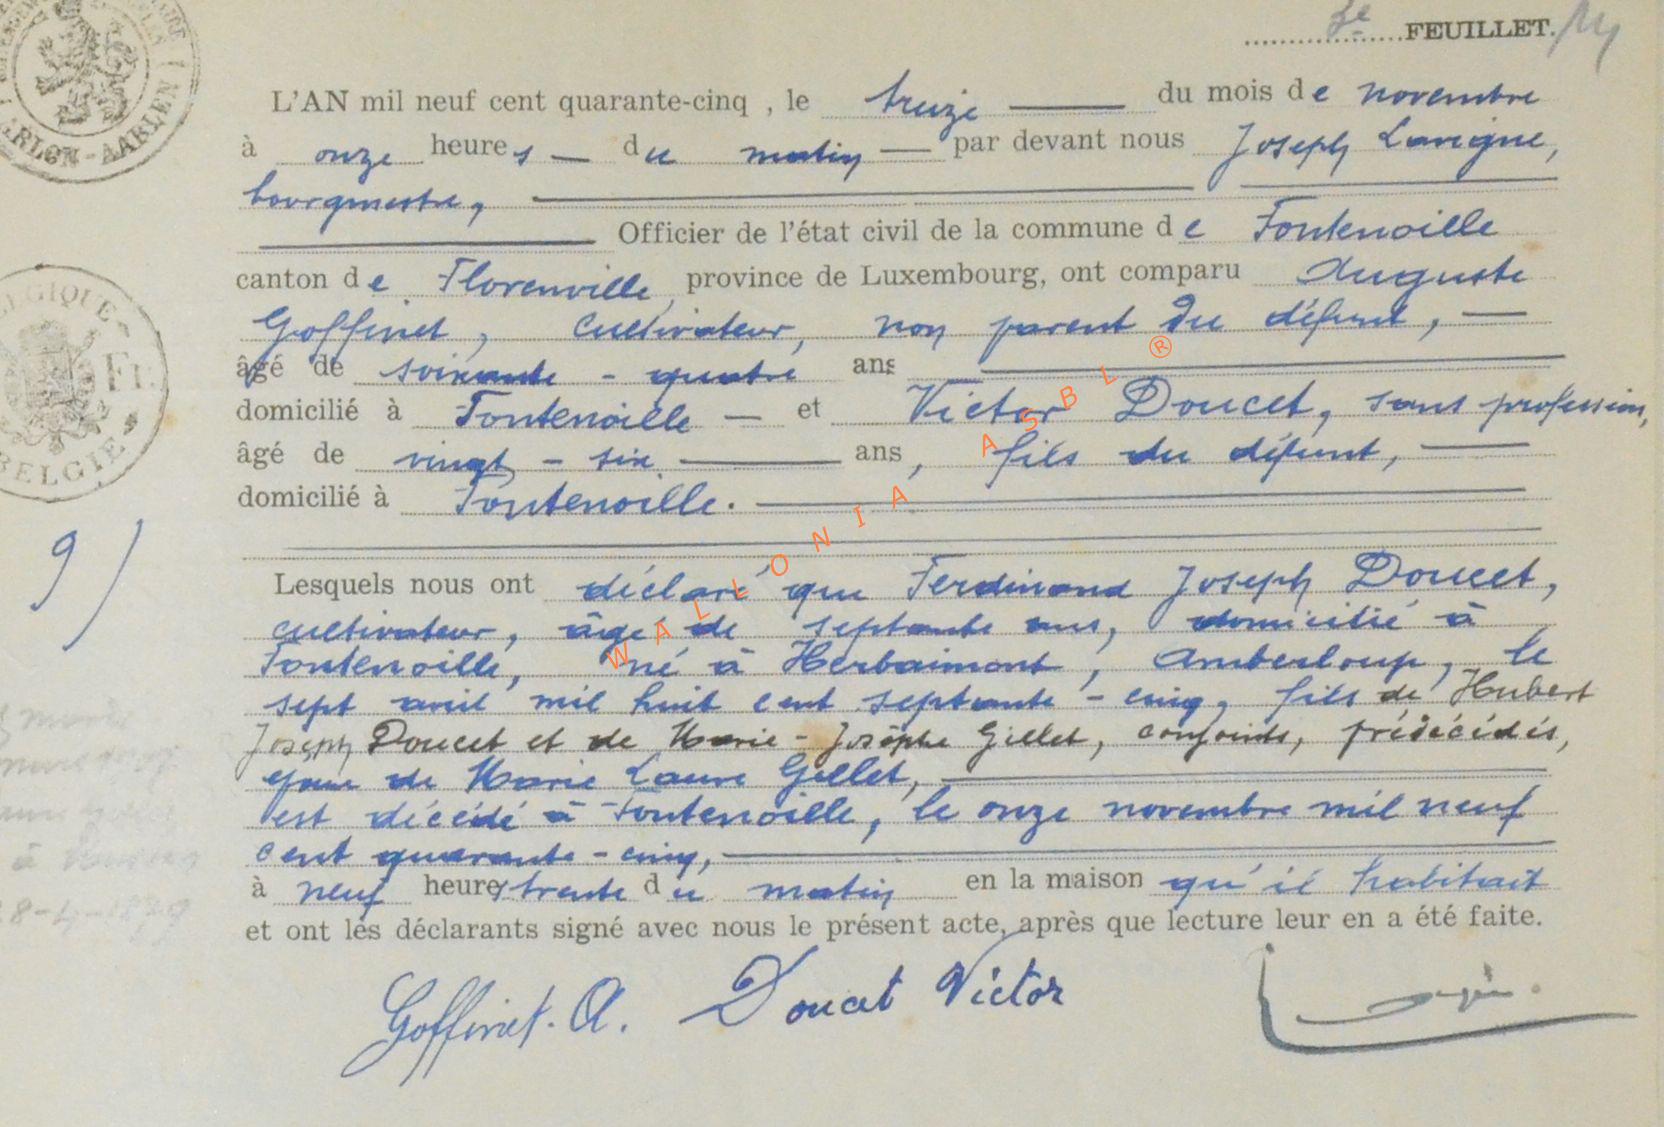 3e FEUILLET.
L'AN mil neuf cent quarante-cinq , le treize du mois de novembre
à onze heures du matin par devant nous Joseph Lavigne,
bourgmestre,
Officier de l'état civil de la commune de Fontenoille
canton de Florenville province de Luxembourg, ont comparu Auguste
Goffinet, cultivateur, non parent du défunt,
âgé de soixante-quatre ans
domicilié à Fontenoille et Victor Doucet, sans profession,
âgé de vingt-six ans, fils du défunt,
domicilié à Fontenoille.
9)
Lesquels nous ont déclaré que Ferdinand Joseph Doucet,
cultivateur, âgé de septante ans, domicilié à
Fontenoille, né à Herbaimont, Amberloup, le
sept avril mil huit cent septante-cinq, fils de Hubert
Joseph Doucet et de Marie-Josèphe Gillet, conjoints, prédécédés,
époux de Marie Laure Gillet,
est décédé à Fontenoille, le onze novembre mil neuf
cent quarante-cinq,
à neuf heures trente du matin en la maison qu'il habitait
et ont les déclarants signé avec nous le présent acte, après que lecture leur en a été faite.
Goffinet. A. Doucet Victor
ARLON-AARLEN
BELGIQUE
Fr.
BELGIE
WALLONIA ASBL ®